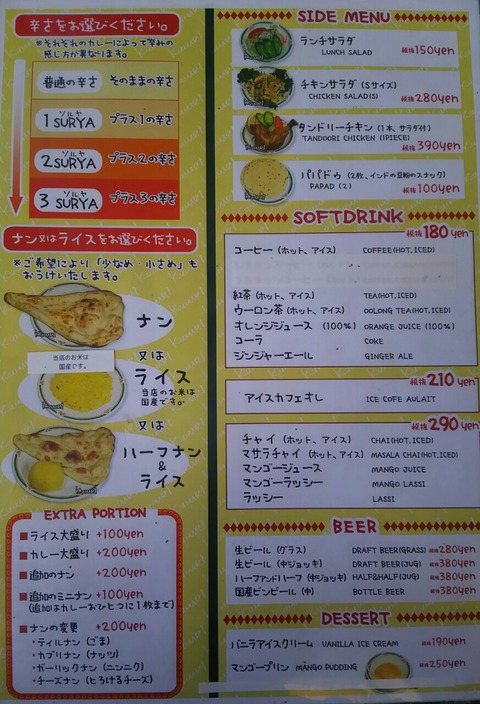 辛さをお選びください。
※それぞれのカレーによって辛みの
感じ方が異なります。
普通の辛さ そのままの辛さ
ソルヤ
1 SURYA プラス1の辛さ
ソルヤ
2 SURYA プラス2の辛さ
ソルヤ
3 SURYA プラス3の辛さ
ナン又はライスをお選びください。
※ご希望により「少なめ・小さめ」も
おうけいたします。
ナン
当店のお米は
国産です。
又は
ライス
当店のお米は
国産です。
又は
ハーフナン
&
ライス
EXTRA PORTION
■ライス大盛り +100yen
■カレー大盛り +200yen
■追加のナン +200yen
■追加のミニナン +100yen
(追加はカレーおひとつに1枚まで)
■ナンの変更 +200yen
・ティルナン(ごま)
・カブリナン(ナッツ)
・ガーリックナン(ニンニク)
・チーズナン(とろけるチーズ)
SIDE MENU
ランチサラダ
LUNCH SALAD 税抜150yen
チキンサラダ(Sサイズ)
CHICKEN SALAD(S) 税抜280yen
タンドリーチキン(1本、サラダ付)
TANDOORI CHICKEN (1PIECE) 税抜390yen
パパドゥ(2枚、インドの豆粉のスナック)
PAPAD (2) 税抜100yen
SOFTDRINK
税抜180yen
コーヒー(ホット、アイス) COFFEE(HOT,ICED)
紅茶(ホット、アイス) TEA(HOT,ICED)
ウーロン茶(ホット、アイス) OOLONG TEA(HOT,ICED)
オレンジジュース(100%) ORANGE JUICE (100%)
コーラ COKE
ジンジャーエール GINGER ALE
税抜210yen
アイスカフェオレ ICE COFE AULAIT
税抜290yen
チャイ(ホット、アイス) CHAI(HOT,ICED)
マサラチャイ(ホット、アイス) MASALA CHAI(HOT,ICED)
マンゴージュース MANGO JUICE
マンゴーラッシー MANGO LASSI
ラッシー LASSI
BEER
生ビール(グラス) DRAFT BEER(GRASS) 税抜280yen
生ビール(中ジョッキ) DRAFT BEER(JUG) 税抜380yen
ハーフアンドハーフ(中ジョッキ) HALF&HALF(JUG) 税抜380yen
国産ビンビール(中) BOTTLE BEER 税抜380yen
DESSERT
バニラアイスクリーム VANILLA ICE CREAM 税抜190yen
マンゴープリン MANGO PUDDING 税抜250yen